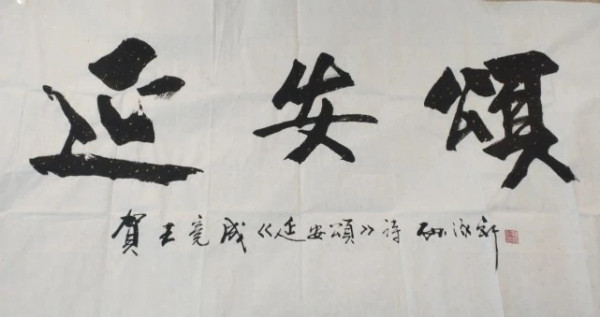 延安頌
賀王竟成《延安頌》诗